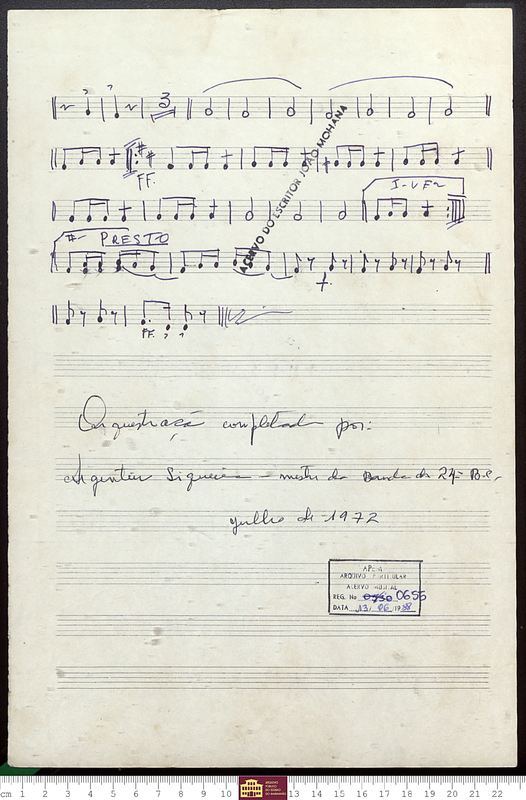 3
FF.
I-VEZ
PRESTO
FF.
ACERVO DO ESCRITOR JOÃO MOHANA
Orquestraçã completada por:
Argentin Siqueira - mestre da Banda do 24º B.C.
julho de 1972
ARQUIVO PARTICULAR
ACERVO MUSICAL
REG. No 0655
DATA 13/06/1988
cm 1 2 3 4 5 6 7 8 9 10 13 14 15 16 17 18 19 20 21 22